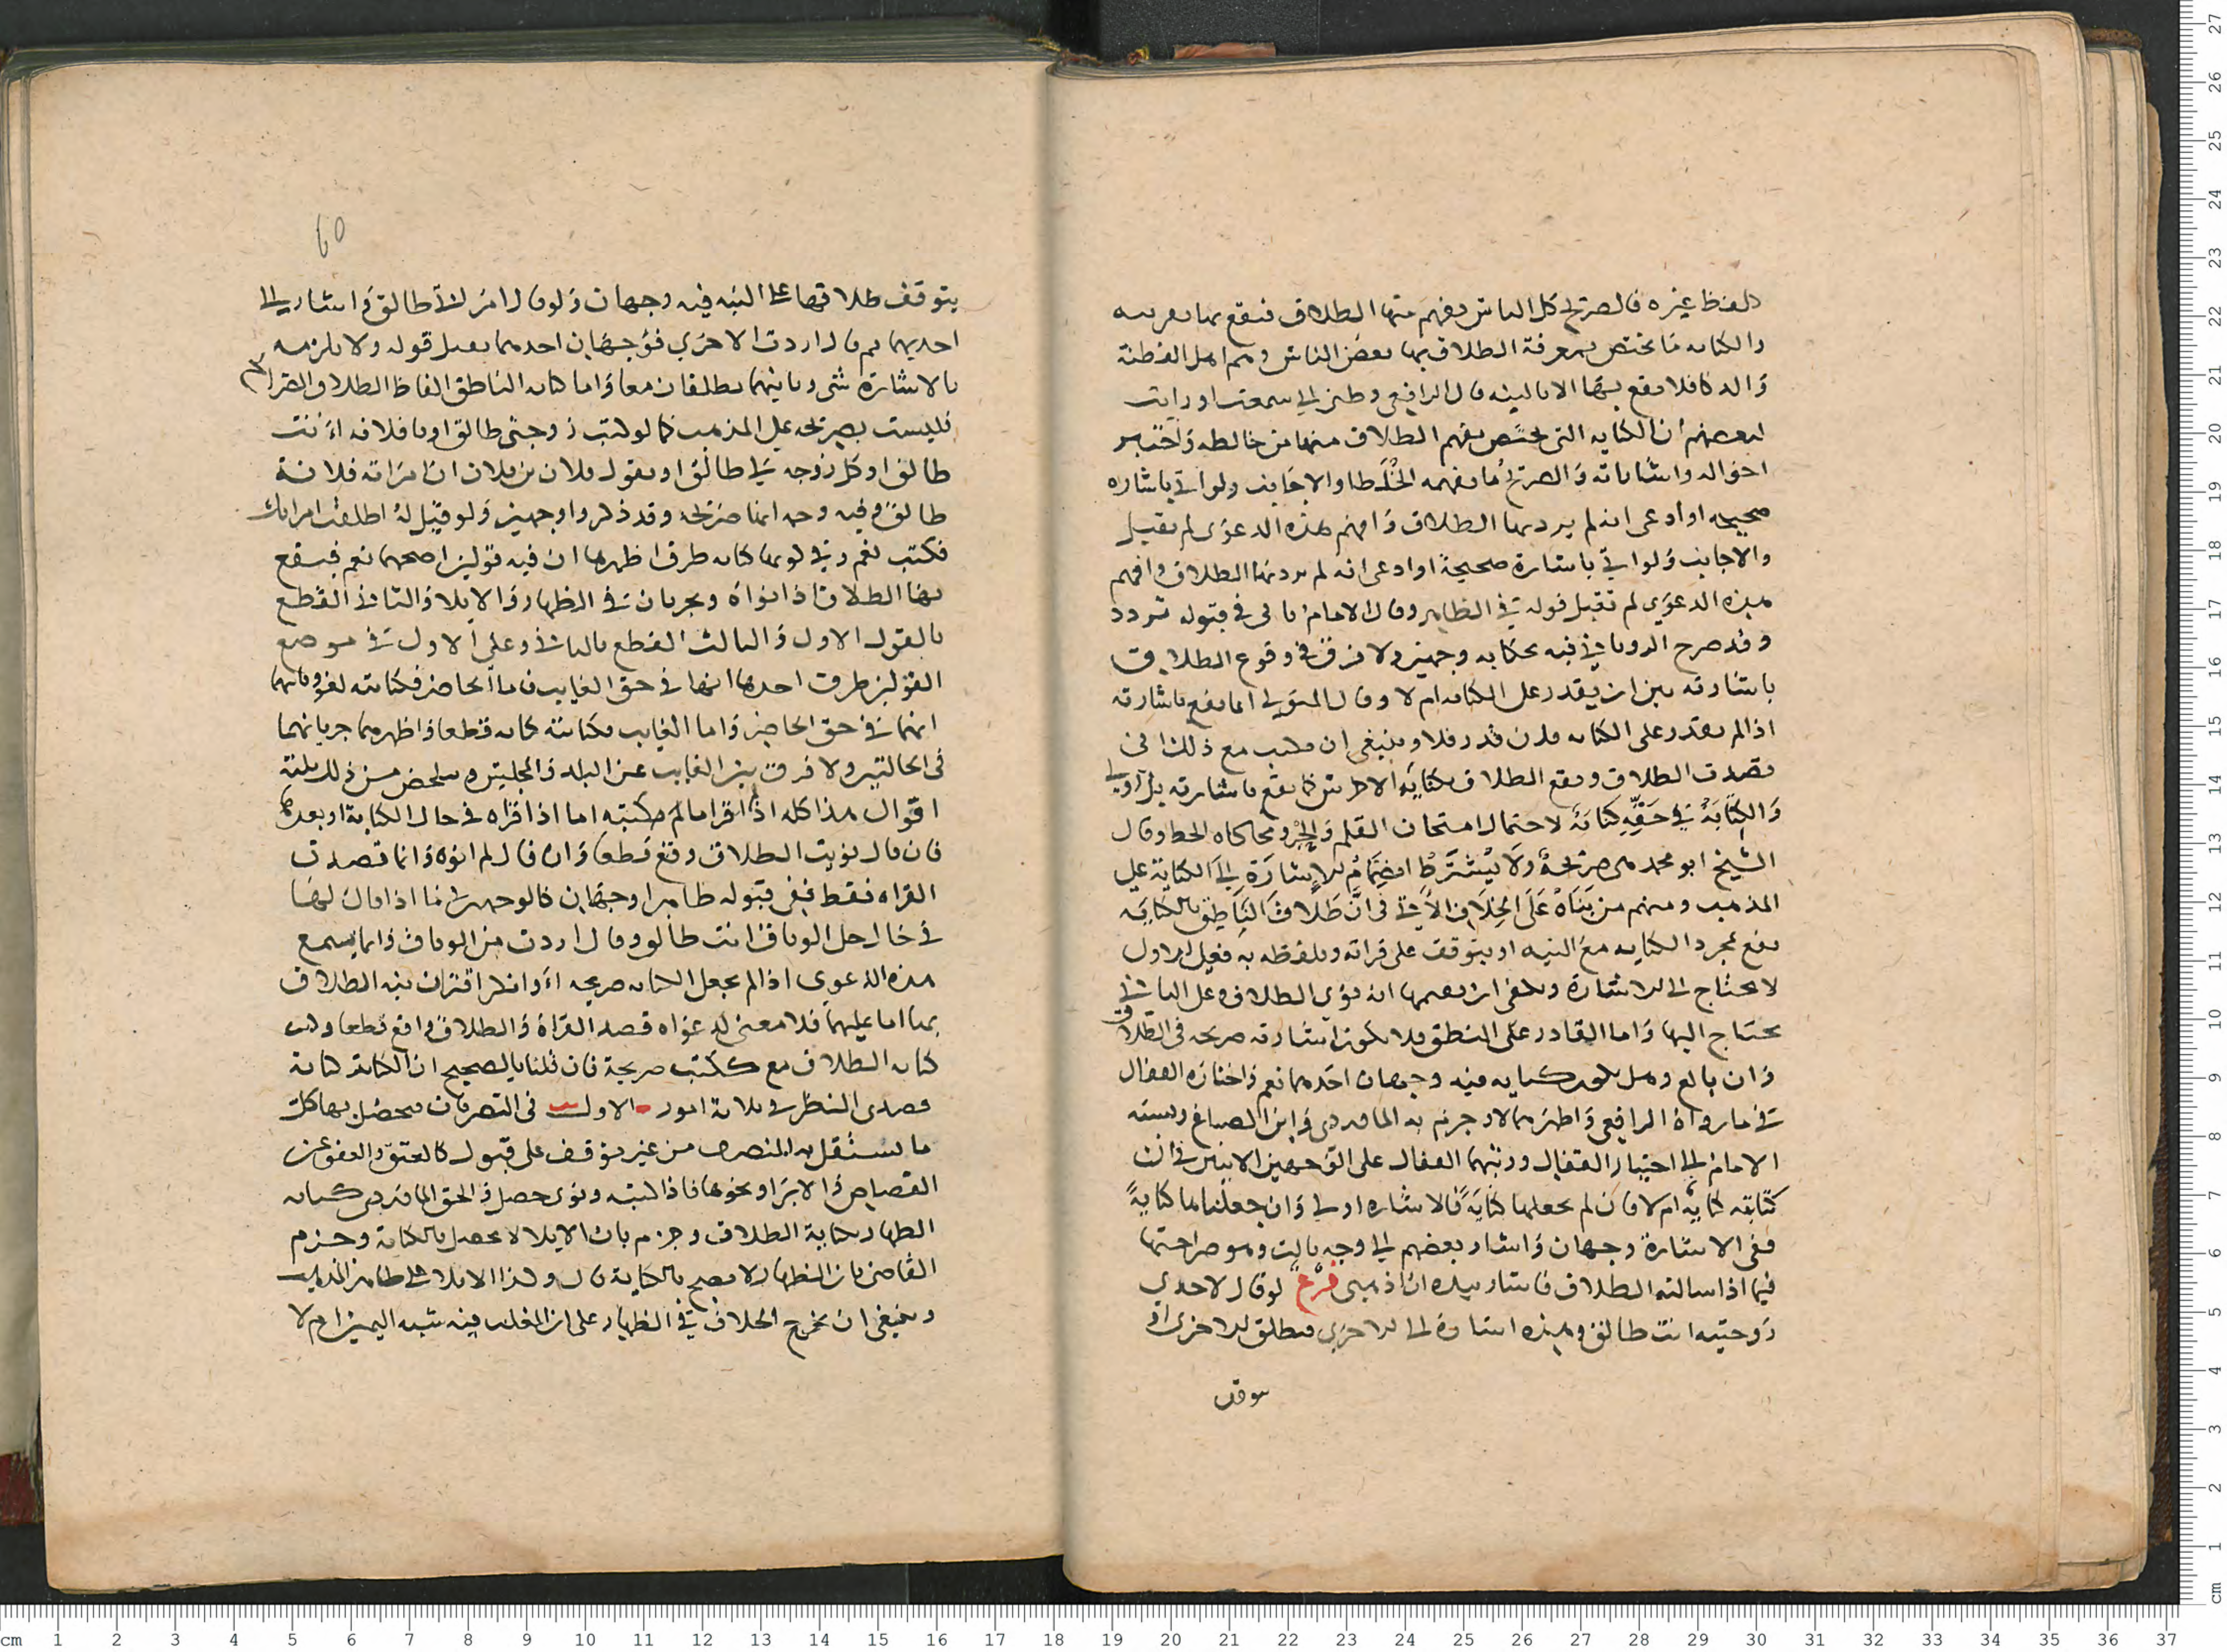 كلفظ غيره فالصريح كل الناس يفهم منها الطلاق فيقع بها بغير نيه
والكنايه ما يختص بمعرفة الطلاق بها بعض الناس وهم اهل الفطنة
والذكا فلا يقع بها الا بالنيه قال الرافعي وظني اني سمعت او رايت
لبعضهم ان الكنايه التي يختص بفهم الطلاق منها من خالطه واختبر
احواله واشاراته والصريح ما يفهمه الخلطا والاجانب ولو اتي باشاره
صحيحه او ادعى انه لم يرد بها الطلاق وافهم هذه الدعوى لم تقبل
والاجانب ولو اتي باشارة صحيحة او ادعى انه لم يرد بها الطلاق وافهم
هذه الدعوى لم تقبل قوله في الظاهر وقال الامام ما لي في قبوله تردد
وقد صرح الروياني فيه بحكايه وجهين ولا فرق في وقوع الطلاق
باشارته بين ان يقدر على الكتابه ام لا وقال المتولي انما يقع باشارته
اذا لم يقدر على الكتابه فان قدر فلا وينبغي ان يكتب مع ذلك اني
قصدت الطلاق ويقع الطلاق بكتابة الاخرس كما يقع باشارته بل اولى
والكتابة في حقه كناية لاحتمال امتحان القلم والحبر ومحاكاه الخط وقال
الشيخ ابو محمد هي صريحة ولا يشترط انضمام الاشارة الي الكتابة علي
المذهب ومنهم من بناه على الخلاف الاتي في ان طلاق الناطق بالكتابه
يقع بمجرد الكتابه مع النيه او يتوقف على قراته وتلفظه به فعلي الاول
لا يحتاج الى الاشارة ويكفي ان يفهمها انه نوى الطلاق وعلى الثاني
يحتاج اليها واما القادر على النطق فلا تكون اشارته صريحه في الطلاق
وان بالغ وهل تكون كنايه فيه وجهان احدهما نعم واختاره القفال
في ما رواه الرافعي واظهرهما لا وجزم به الماوردي وابن الصباغ ونسبه
الامام الى اختيار القفال ورتبهما القفال على الوجهين الاتيين في ان
كتابته كناية ام لا فان لم نجعلها كناية فالاشاره اولى وان جعلناها كناية
ففي الاشارة وجهان واشار بعضهم الي وجه ثالث وهو صراحتها
فيما اذا سالته الطلاق فاشار بيده ان اذهبي فرع لو قال لاحدي
زوجتيه انت طالق وهذه اشارة الى الاخري فتطلق الاخرى او
يتوقف
60
يتوقف طلاقها على النيه فيه وجهان ولو قال امراتي طالق واشار الى
احديهما ثم قال اردت الاخري فوجهان احدهما يقبل قوله ولا يلزمه
بالاشارة شي وثانيهما تطلقان معا واما كتابه الناطق الفاظ الطلاق الصرايح
فليست بصريحه على المذهب كما لو كتب زوجتي طالق او يا فلانه انت
طالق او كل زوجه لي طالق او يقول فلان بن فلان ان امراته فلانة
طالق وفيه وجه انها صريحه وقد ذكروا وجهين ولو قيل له اطلقت امراتك
فكتب نعم وفي كونها كنايه طرق اظهرها ان فيه قولين اصحهما نعم فيقع
بها الطلاق اذا نواه ويجريان في الظهار والايلا والثاني القطع
بالقول الاول والثالث القطع بالثاني وعلى الاول في موضع
القولين طرق احدها انها في حق الغايب فاما الحاضر فكتابته لغو وثانيها
انهما في حق الحاضر واما الغايب فكتابته كنايه قطعا واظهرهما جريانهما
في الحالتين ولا فرق بين الغايب عن البلد والمجلس وتلخص من ذلك ثلثة
اقوال هذا كله اذا قرا ما لم يكتبه اما اذا قراه في حال الكتابة او بعدها
فان قال نويت الطلاق وقع قطعا وان قال لم انوه وانما قصدت
القراه فقط ففي قبوله ظاهرا وجهان كالوجهين ما اذا قال لها
في حال حل الوثاق انت طالق وقال اردت من الوثاق وانما يسمع
هذه الدعوى اذا لم نجعل الكتابه صريحه او انكر اقتران نيه الطلاق
بها اما عليهما فلا معنى لدعواه قصد القراة والطلاق واقع قطعا وكتب
كتابه الطلاق مع ككتب صريحة فان قلنا بالصحيح ان الكتابه كناية
فصدى النظر في ثلاثة امور الاول في التصرفات فيحصل بها كل
ما يستقل به المتصرف من غير توقف على قبول كالعتق والعفو عن
القصاص والابرا ونحوها فاذا كتبه ونوى حصل والحق الماوردي كتابه
الظهار بكتابة الطلاق وجزم بان الايلا لا يحصل بالكتابة وجزم
القاضي بان الظهار لا يصح بالكتابة قال وكذا الايلا على ظاهر المذهب
وينبغي ان يخرج الخلاف في الظهار على ان المغلب فيه شبه اليمين ام لا